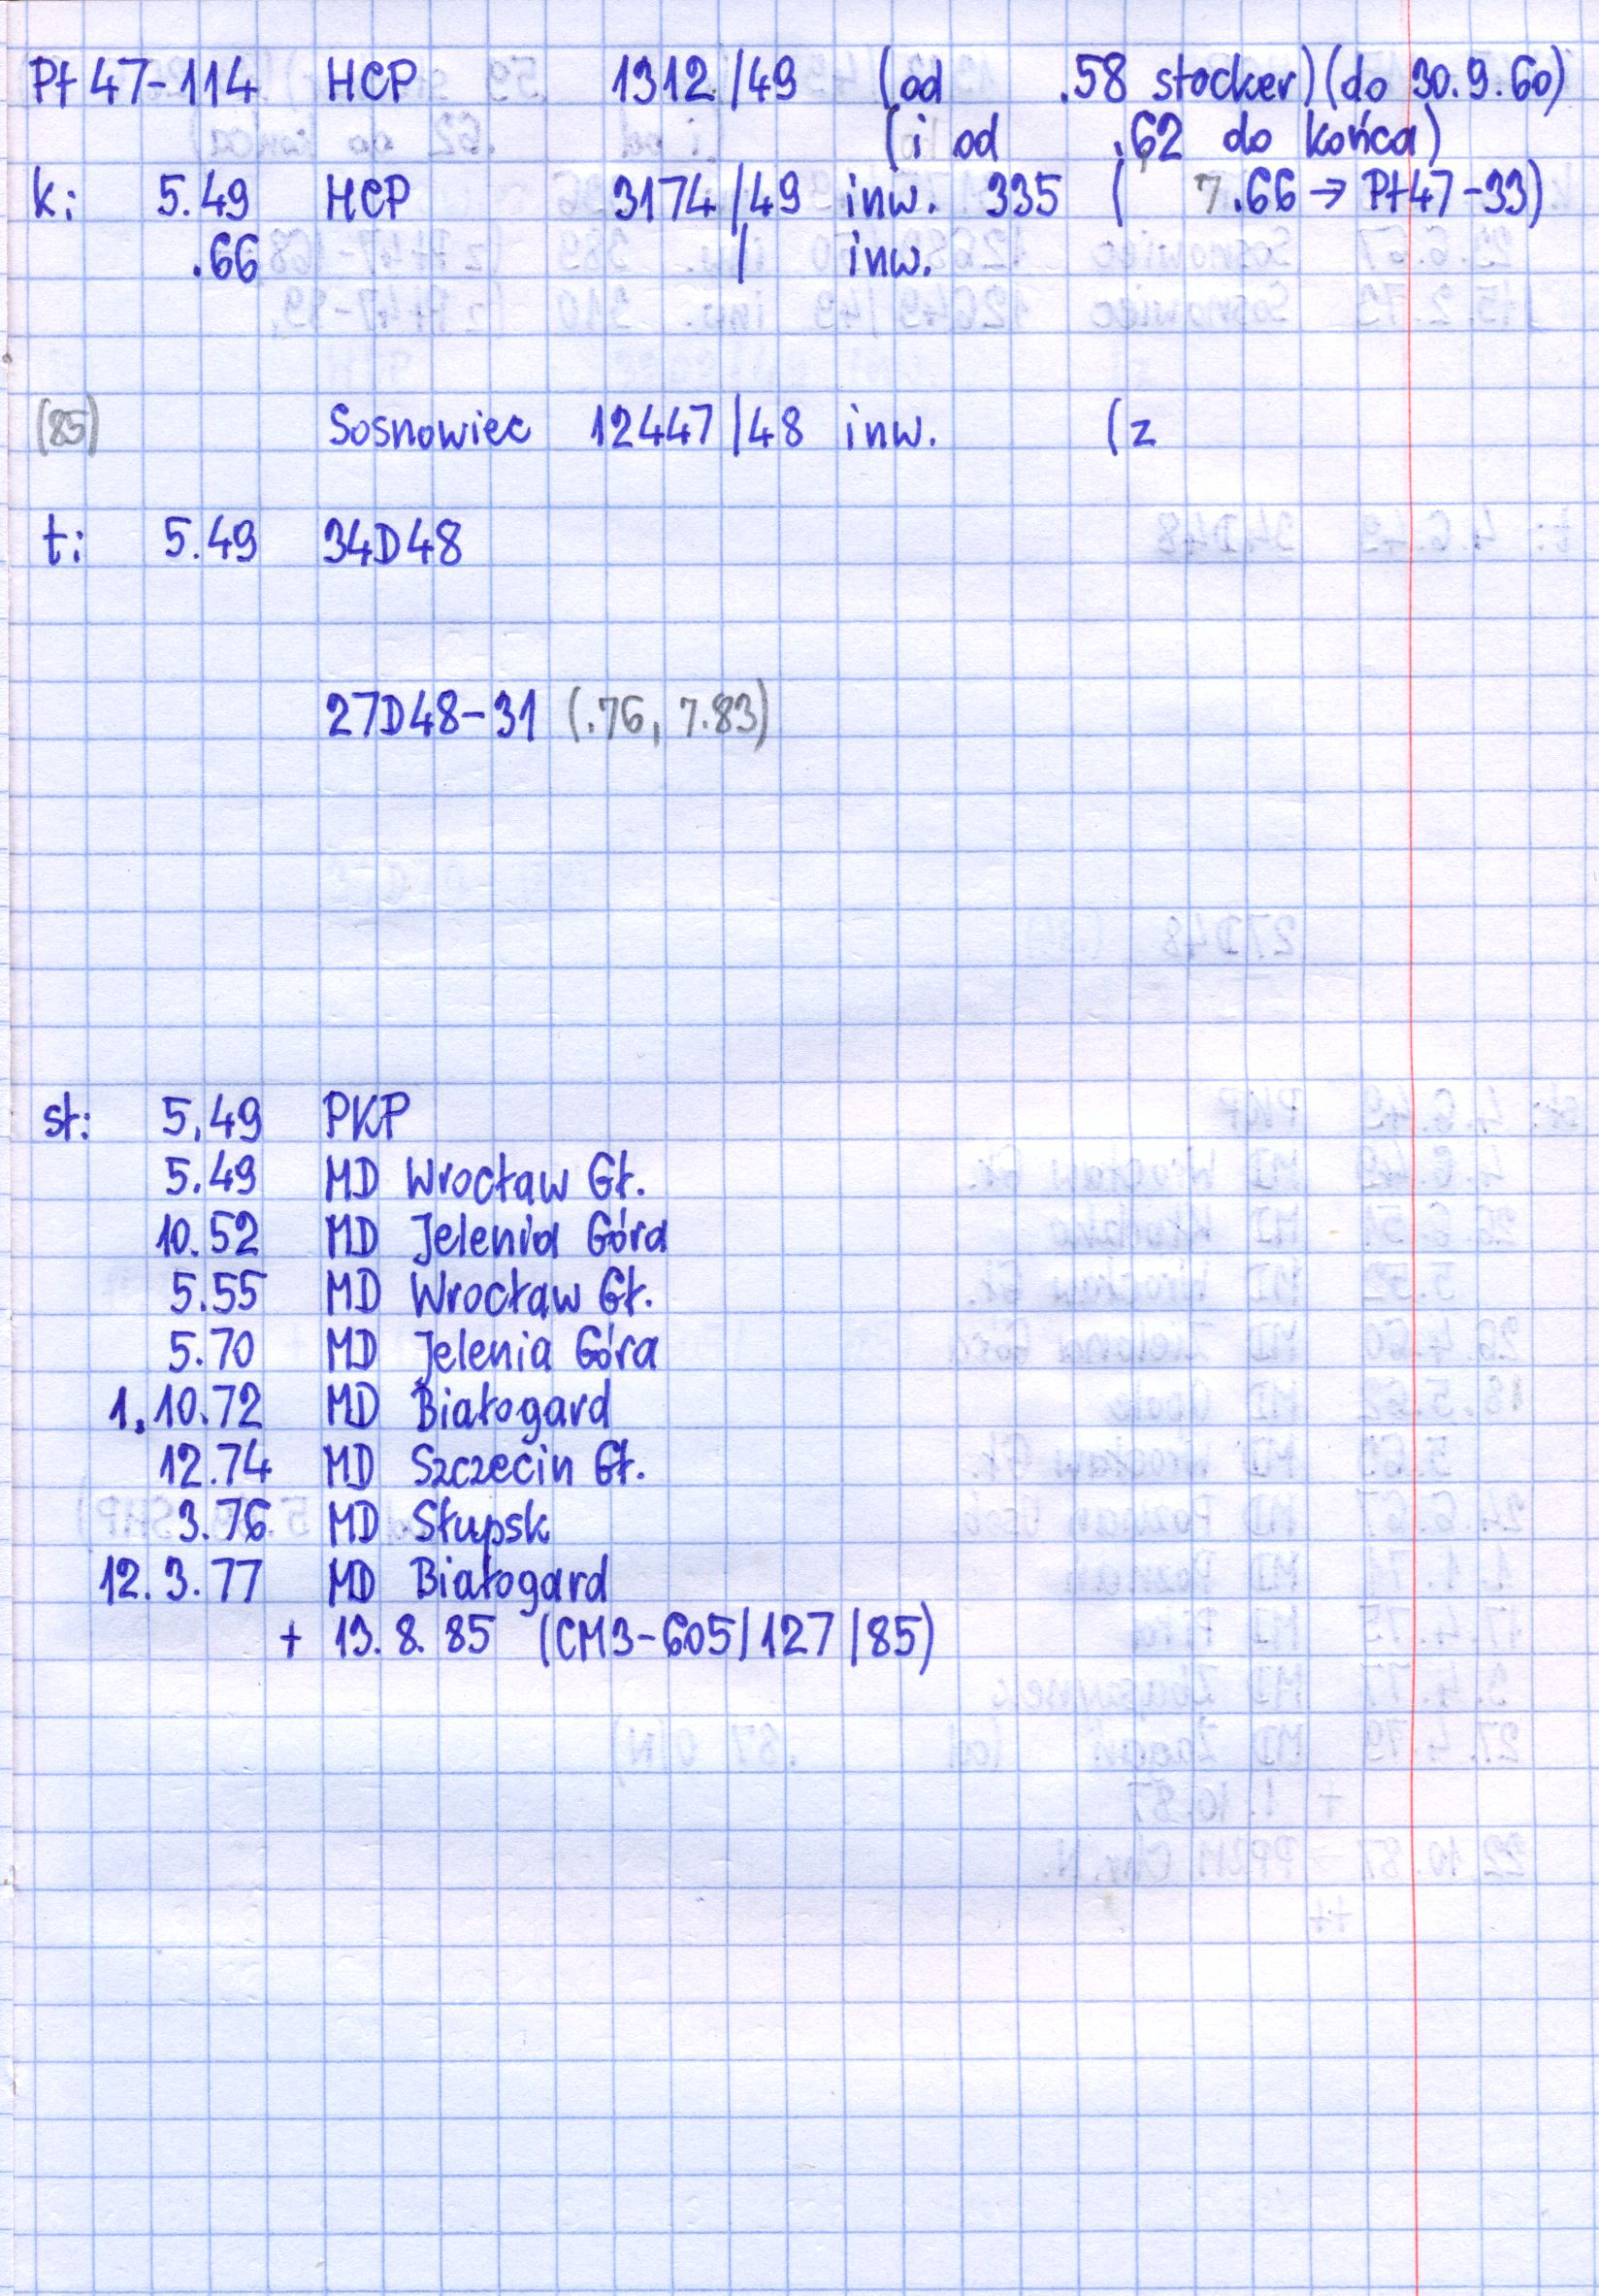 Pt 47-114 HCP 1312/49 (od .58 stocker) (do 30.9.60)
(i od .62 do końca)
k: 5.49 HCP 3174/49 inw. 335 ( 7.66 → Pt47-33)
.66 / inw.
(85) Sosnowiec 12447/48 inw. (z
t: 5.49 34D48
27D48-31 (.76, 7.83)
st: 5.49 PKP
5.49 MD Wrocław Gł.
10.52 MD Jelenia Góra
5.55 MD Wrocław Gł.
5.70 MD Jelenia Góra
1.10.72 MD Białogard
12.74 MD Szczecin Gł.
3.76 MD Słupsk
12.3.77 MD Białogard
+ 13.8.85 (CM3-605/127/85)